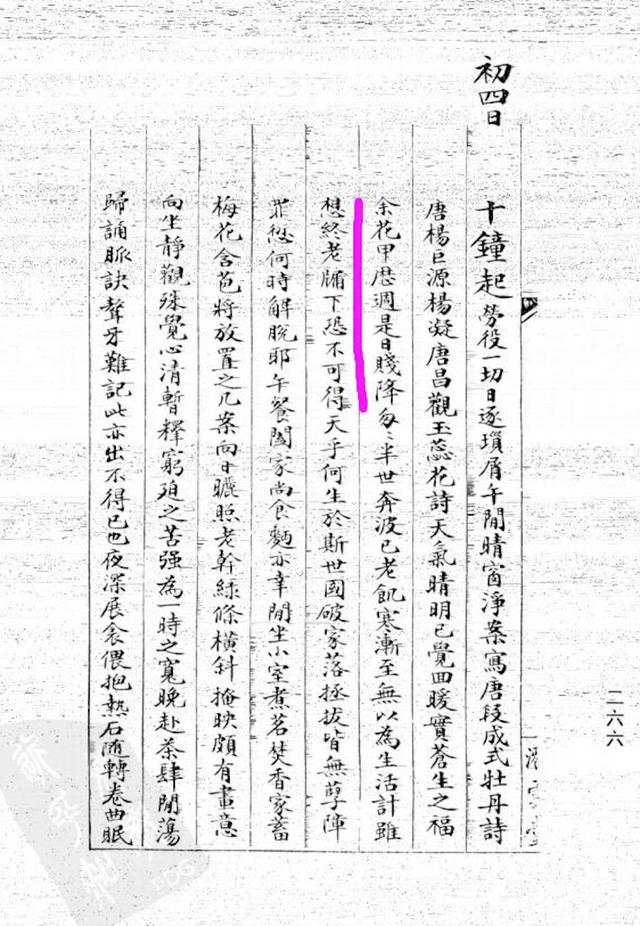 初四日
十鐘起勞役一切日逐瑣屑午間晴窗淨案寫唐段成式牡丹詩
唐楊巨源楊凝唐昌觀玉蕊花詩天氣晴明已覺回暖實蒼生之福
余花甲歷週是日賤降匆匆半世奔波已老飢寒漸至無以為生活計雖
想終老牖下恐不可得天乎何生於斯世國破家落拯拔皆無孽障
罪愆何時解脫耶午餐闔家尚食麵亦幸閒坐小室煮茗焚香家蓄
梅花含苞將放置之几案向日曬照老幹綠條橫斜掩映頗有畫意
向坐靜觀殊覺心清暫釋窮迫之苦强為一時之寬晚赴茶肆閒蕩
歸誦脈訣聱牙難記此亦出不得已也夜深展衾偎抱熱石隨轉卷曲眠
二六六